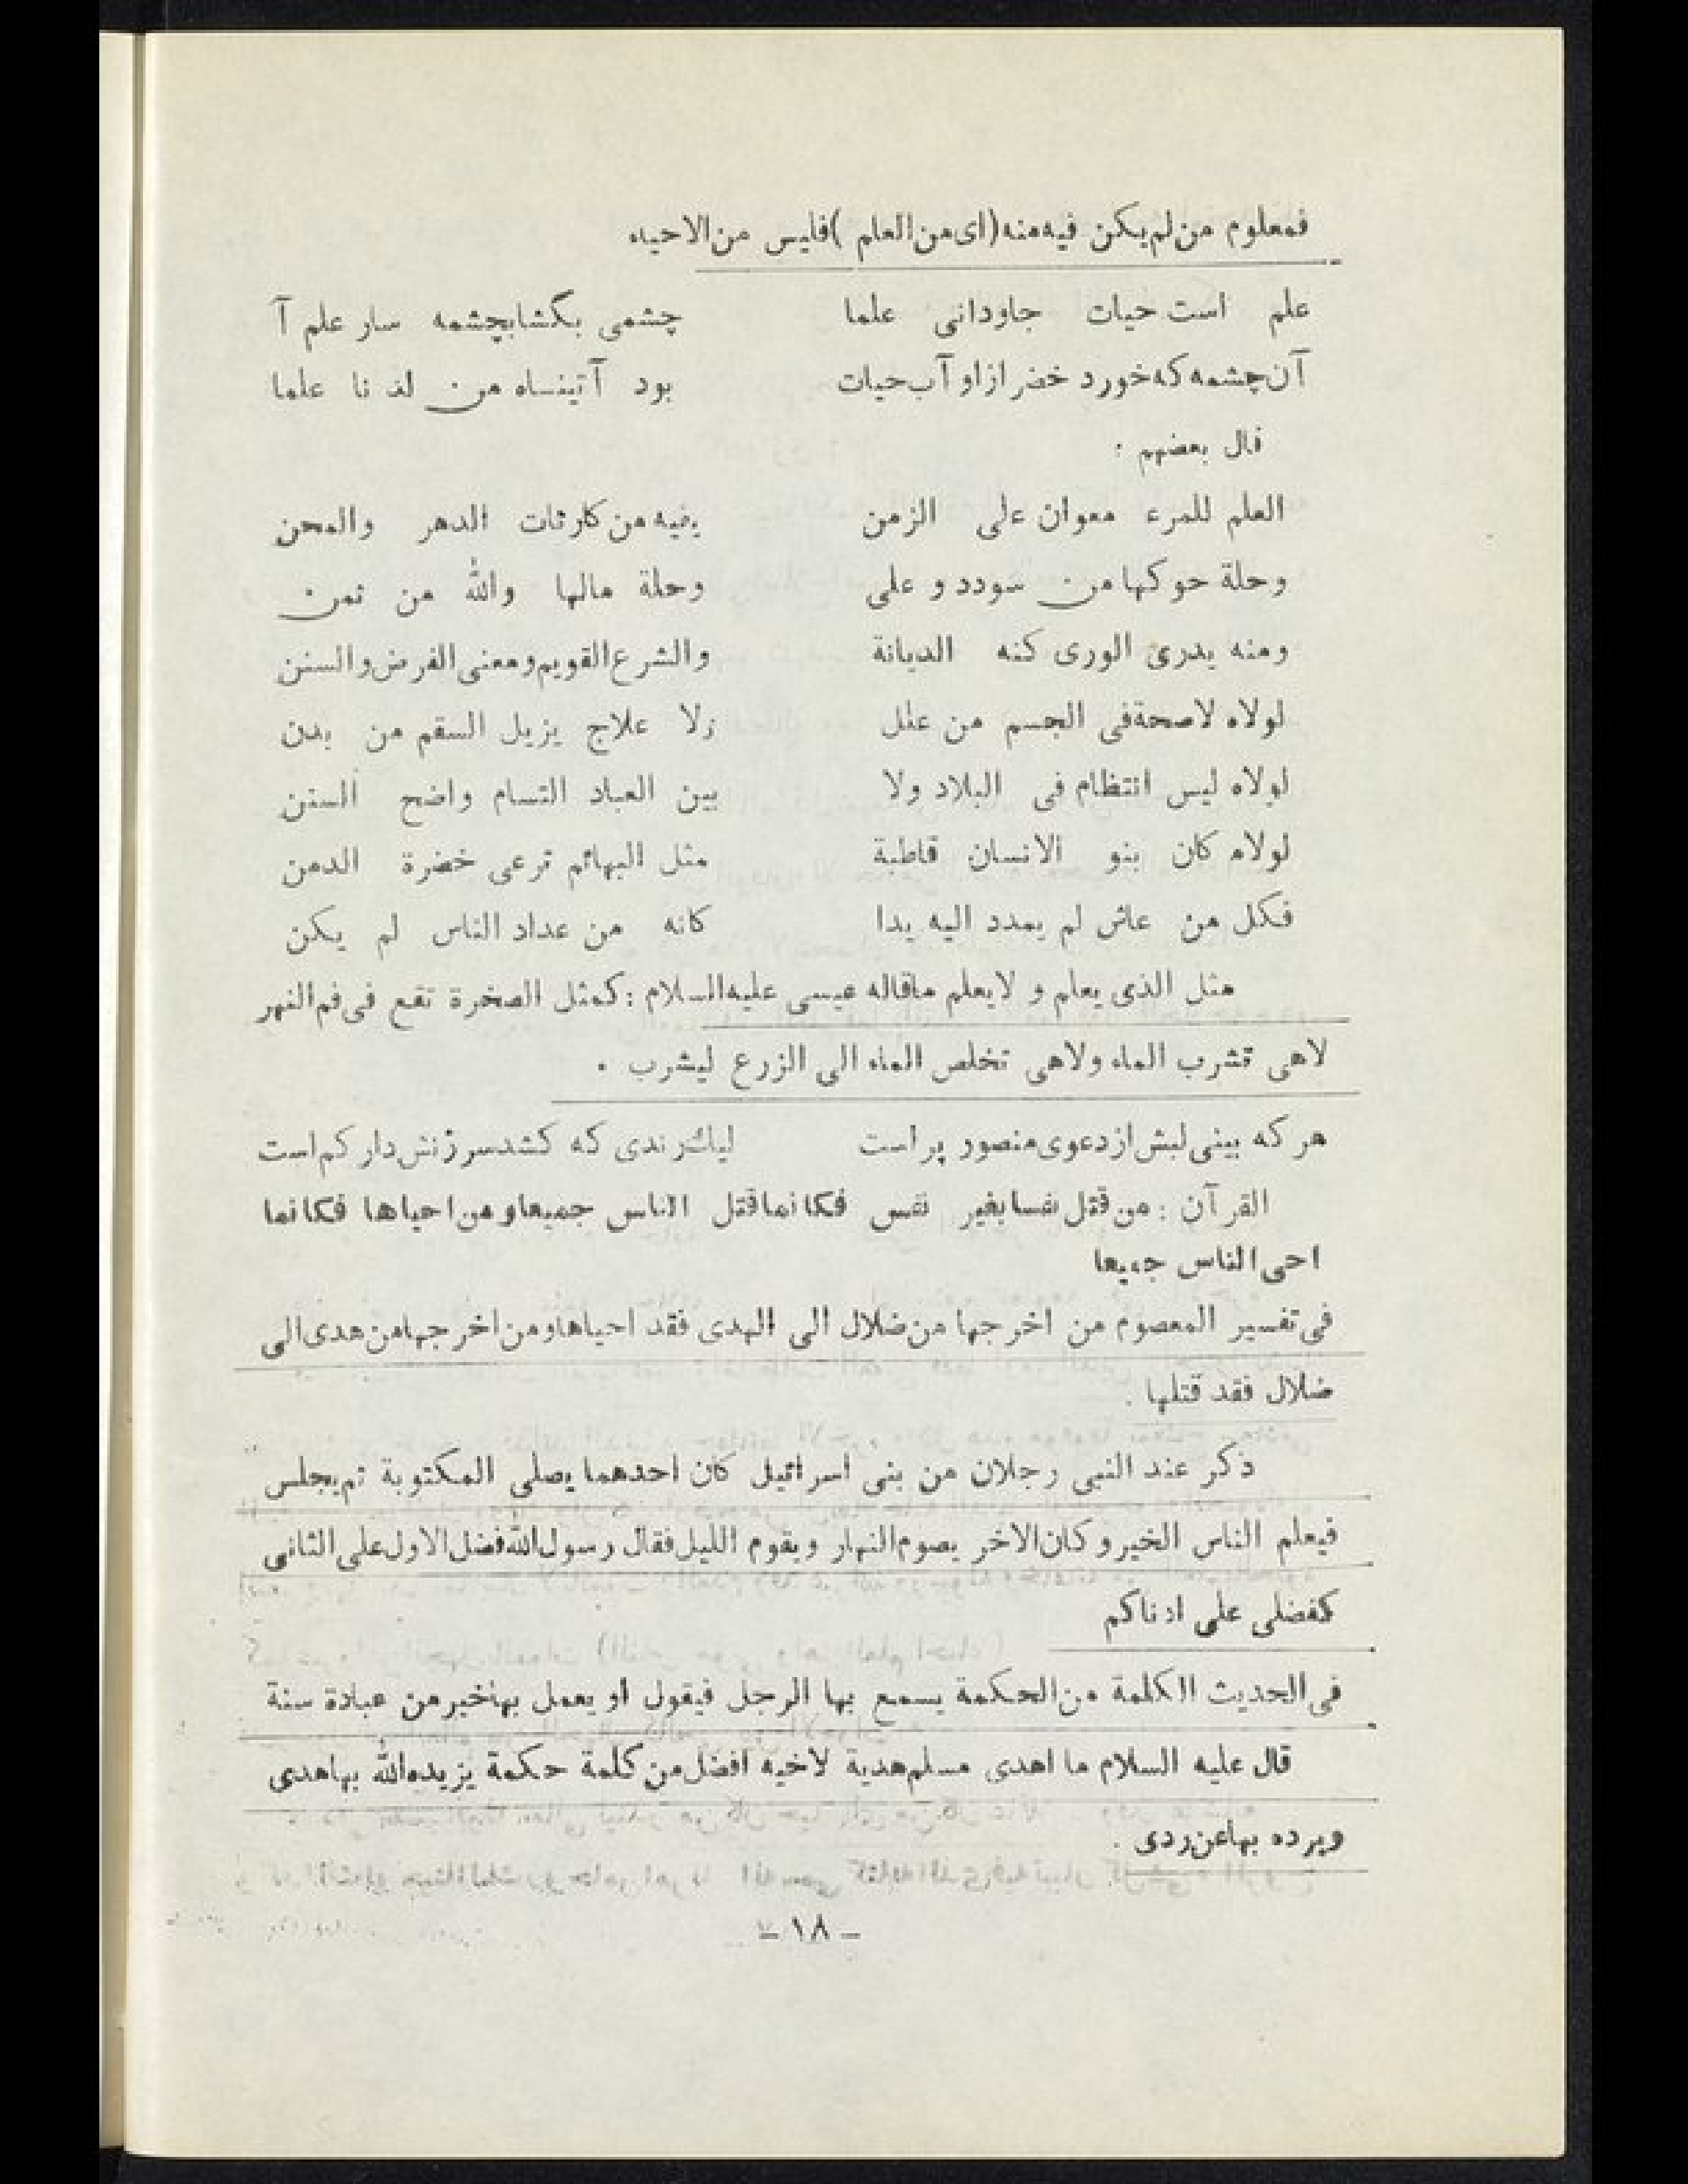 فمعلوم من لم يكن فيه منه (اى من العلم) فليس من الاحياء
علم است حيات جاودانى علما چشمى بگشا بچشمه سار علم آ
آن چشمه كه خورد خضر از او آب حيات بود آتيناه من لدنا علما
قال بعضهم :
العلم للمرء معوان على الزمن يقيه من كارثات الدهر والمحن
وحلة حوكها من سودد و على وحلة مالها والله من ثمن
ومنه يدرى الورى كنه الديانة والشرع القويم ومعنى الفرض والسنن
لولاه لاصحة فى الجسم من علل ولا علاج يزيل السقم من بدن
لولاه ليس انتظام فى البلاد ولا بين العباد التسام واضح السنن
لولاه كان بنو الانسان قاطبة مثل البهائم ترعى خضرة الدمن
فكل من عاش لم يمدد اليه يدا كانه من عداد الناس لم يكن
مثل الذى يعلم و لايعلم ماقاله عيسى عليه السلام : كمثل الصخرة تقع فى فم النهر
لاهى تشرب الماء ولاهى تخلص الماء الى الزرع ليشرب .
هر كه بينى لبش از دعوى منصور پر است ليك رندى كه كشد سرزنش دار كم است
القرآن : من قتل نفسا بغير نفس فكانما قتل الناس جميعا و من احياها فكانما
احى الناس جميعا
فى تفسير المعصوم من اخرجها من ضلال الى الهدى فقد احياها ومن اخرجها من هدى الى
ضلال فقد قتلها .
ذكر عند النبى رجلان من بنى اسرائيل كان احدهما يصلى المكتوبة ثم يجلس
فيعلم الناس الخير و كان الاخر يصوم النهار ويقوم الليل فقال رسول الله فضل الاول على الثانى
كفضلى على ادناكم
فى الحديث الكلمة من الحكمة يسمع بها الرجل فيقول او يعمل بها خير من عبادة سنة
قال عليه السلام ما اهدى مسلم هدية لاخيه افضل من كلمة حكمة يزيده الله بها هدى
ويرده بها عن ردى .
- ١٨ -